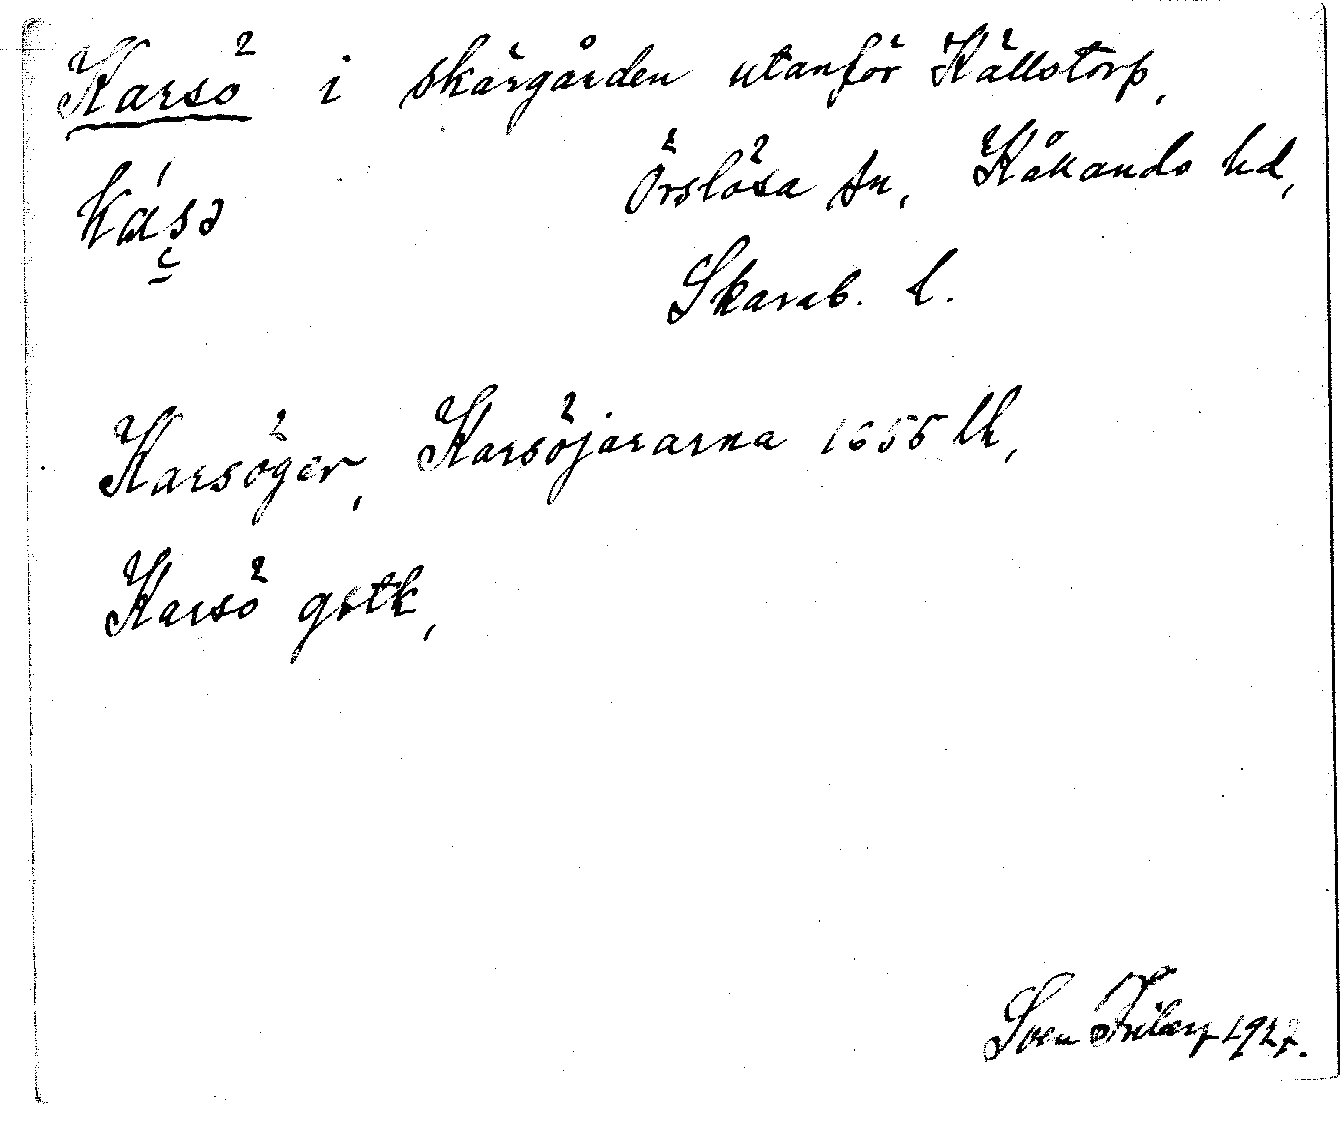 Karsö i skärgården utanför Källstorp,
kásə
Örslösa sn, Kåkands hd,
Skarab. l.
Karsöger, Karsöjararna 1655 lk,
Karsö gstk,
Sven Friberg 1927.